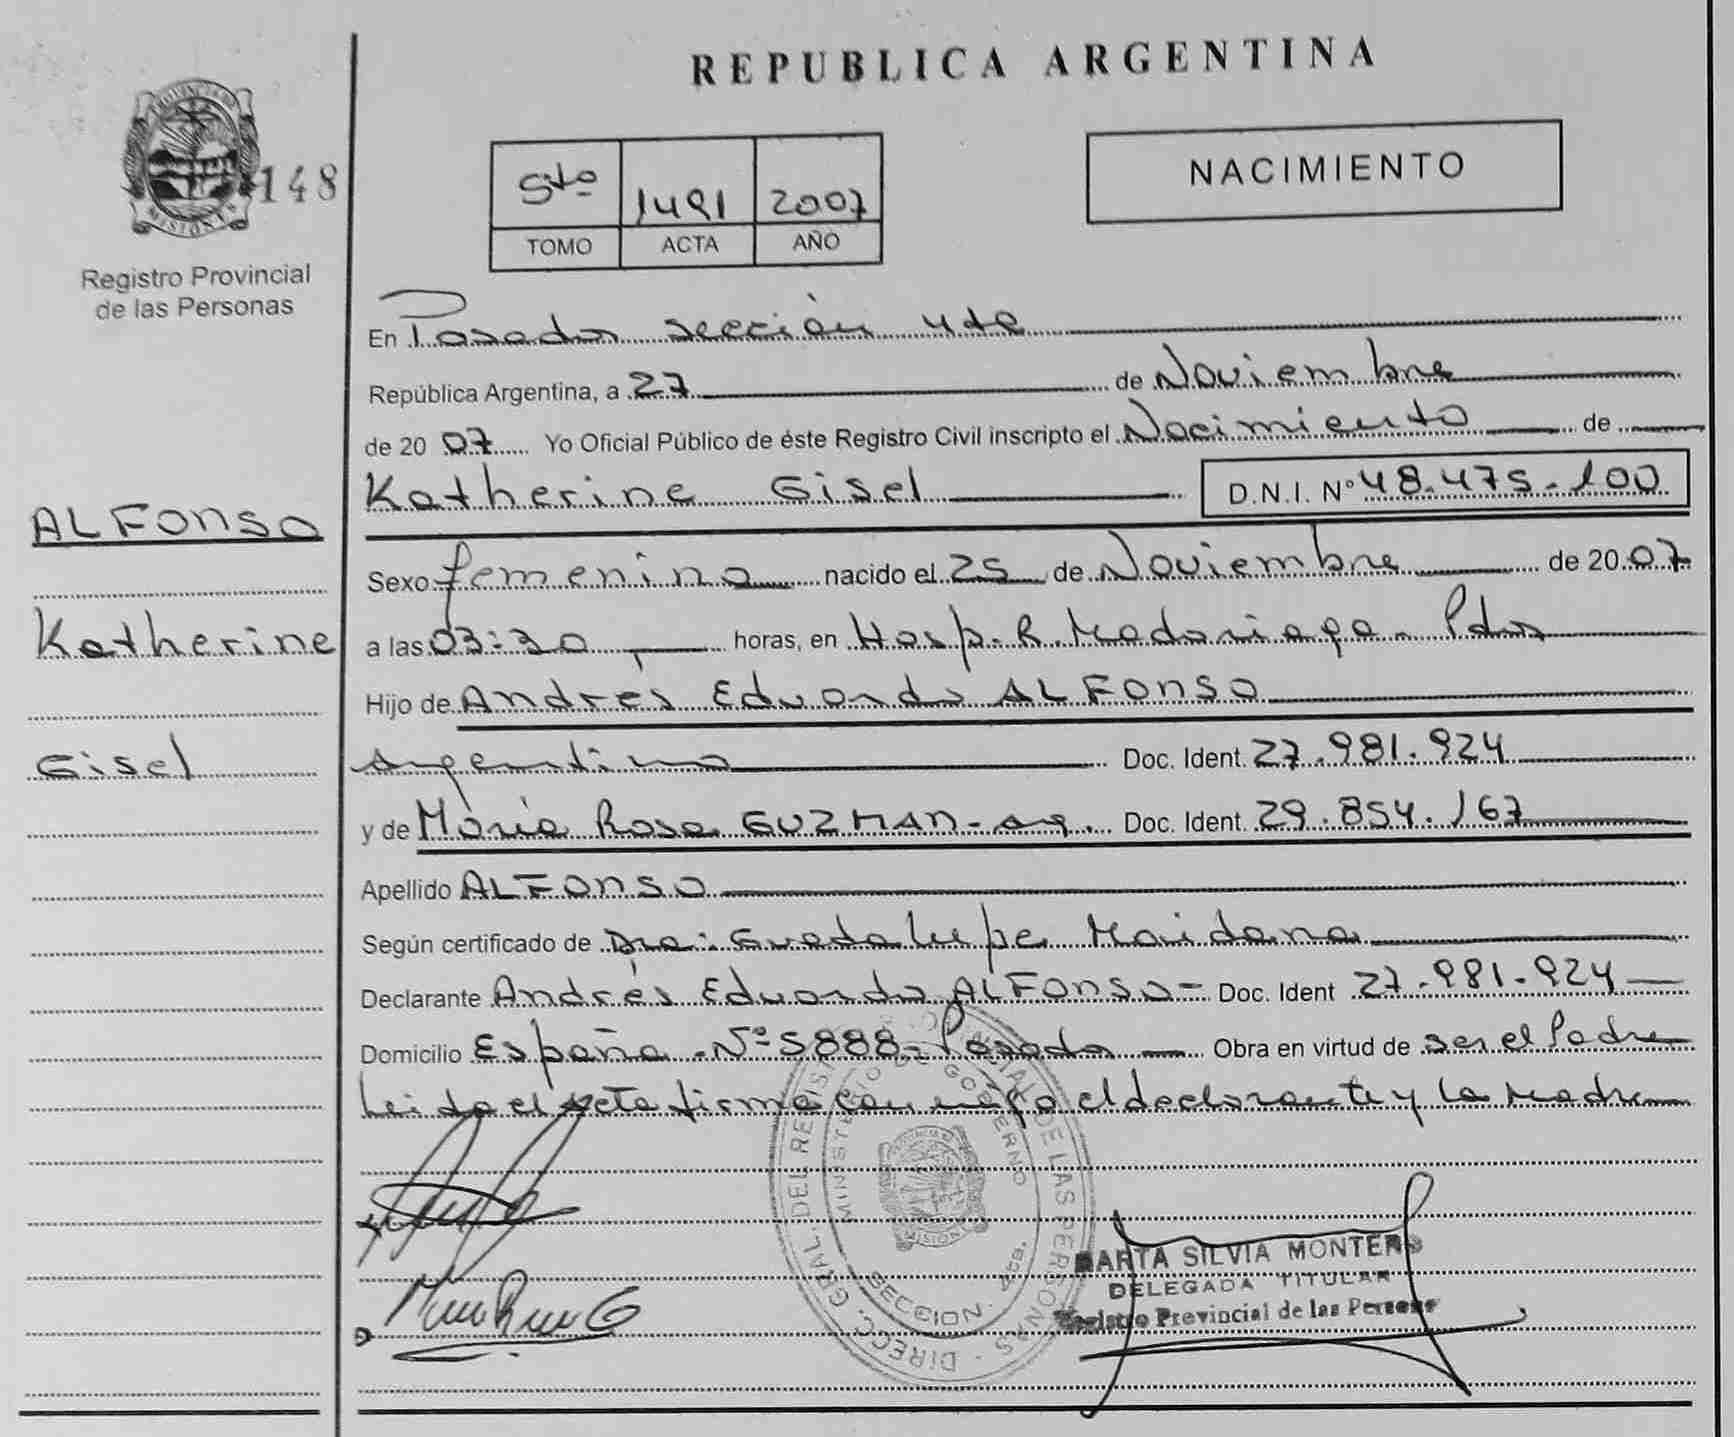 REPUBLICA ARGENTINA
148
Registro Provincial
de las Personas
5to 1491 2007
TOMO ACTA AÑO
NACIMIENTO
En Posadas sección 4ta
República Argentina, a 27 de Noviembre
de 2007 Yo Oficial Público de éste Registro Civil inscripto el Nacimiento de
Katherine Gisel D.N.I. Nº 48.475.100
ALFONSO
Katherine
Gisel
Sexo femenino nacido el 25 de Noviembre de 2007
a las 03:30 horas, en Hosp. R. Madariaga - Pdas
Hijo de Andrés Eduardo ALFONSO
Argentino Doc. Ident. 27.981.924
y de María Rosa GUZMAN - Arg. Doc. Ident. 29.854.167
Apellido ALFONSO
Según certificado de Dra: Guadalupe Maidana
Declarante Andrés Eduardo ALFONSO - Doc. Ident 27.981.924
Domicilio España - Nº 5888 - Posadas Obra en virtud de ser el Padre
Leída el acta firma conmigo el declarante y la Madre
DIRECC. GRAL. DEL REGIST PROVINCIAL DE LAS PERSONAS
MINISTERIO DE GOBIERNO
MISIONES
SECCION
MARTA SILVIA MONTERO
DELEGADA TITULAR
Registro Provincial de las Personas